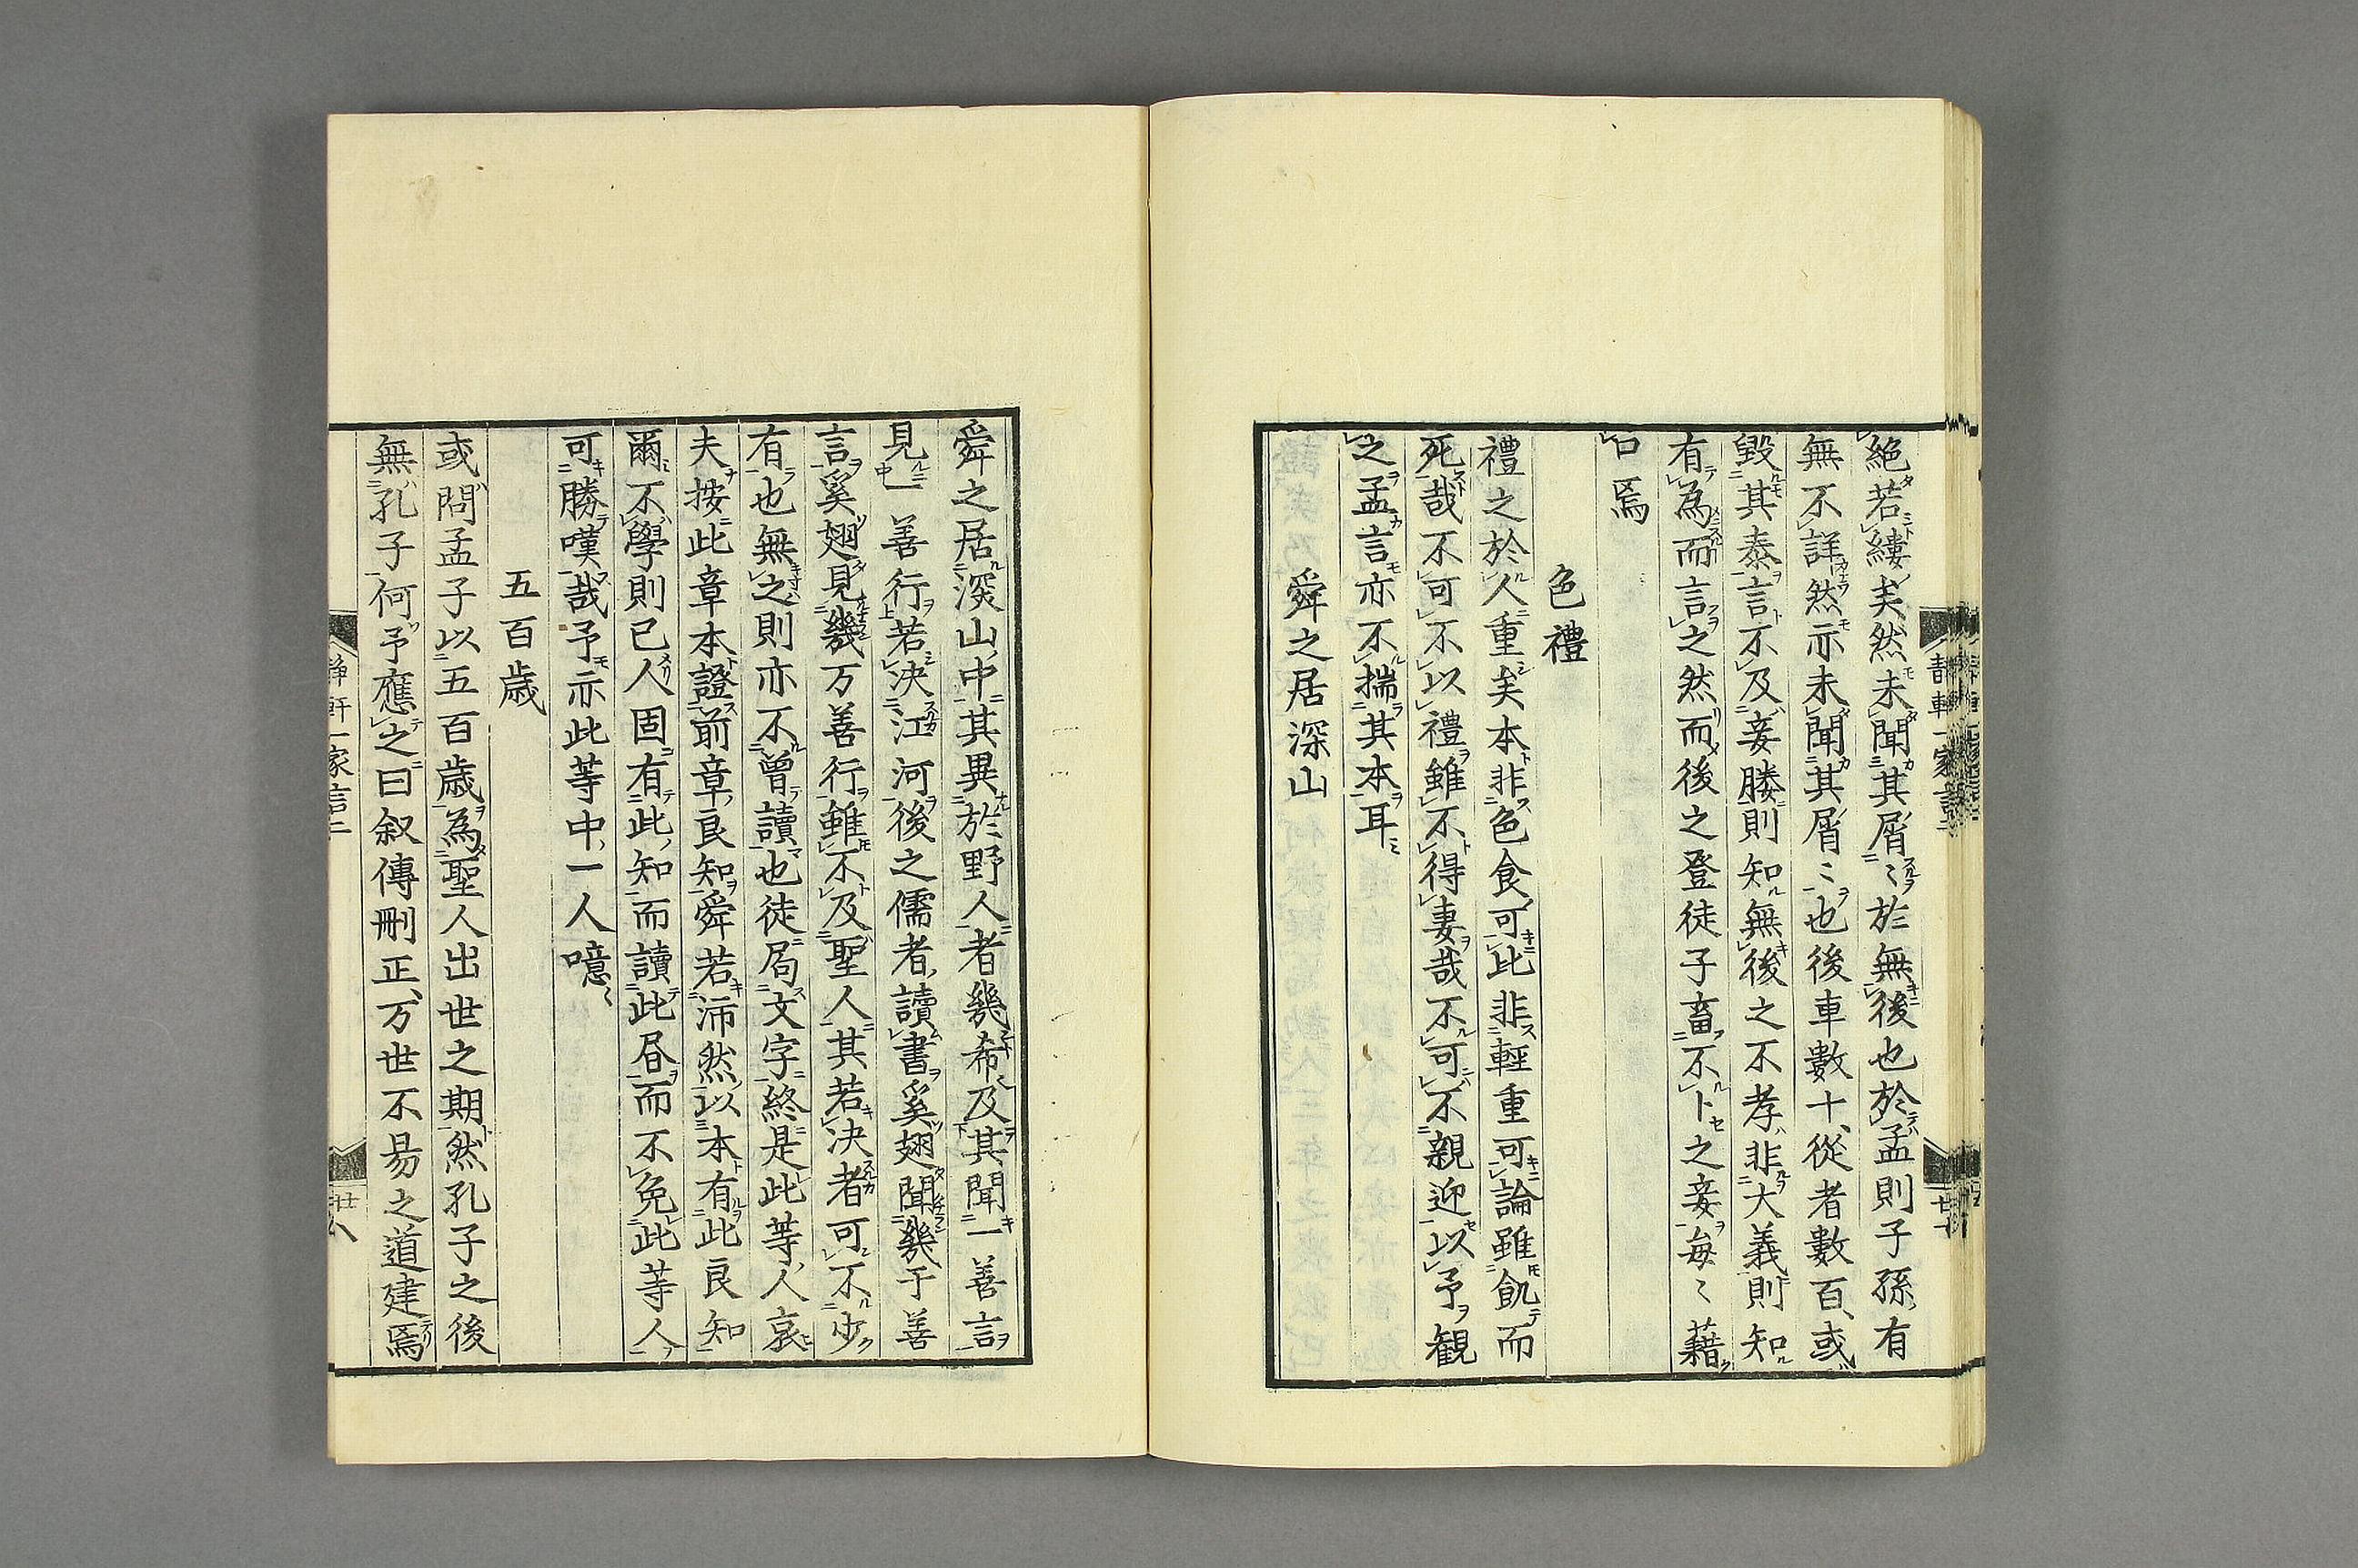 絶若縷矣然未聞其屑〻於無後也於孟則子孫有
無不詳然亦未聞其屑〻也後車數十從者數百或
毀其泰言不及妾媵則知無後之不孝非大義則知
有為而言之然而後之登徒子畜不卜之妾毎〻藉
口焉
色禮
禮之於人重矣本非色食可此非輕重可論雖飢而
死哉不可不以禮雖不得妻哉不可不親迎以予観
之孟言亦不揣其本耳
舜之居深山
舜之居深山中其異於野人者幾希及其聞一善言
見一善行若決江河後之儒者讀書奚翅聞幾于善
言奚翅見幾万善行雖不及聖人其若决者可不少
有也無之則亦不曽讀也徒局文字終是此等人哀
夫按此章本證前章良知舜若沛然以本有此良知
爾不學則已人固有此知而讀此昏而不免此等人
可勝嘆哉予亦此等中一人噫〻
五百歳
或問孟子以五百歳為聖人出世之期然孔子之後
無孔子何予應之曰叙傳刪正万世不易之道建焉
静軒一家言二